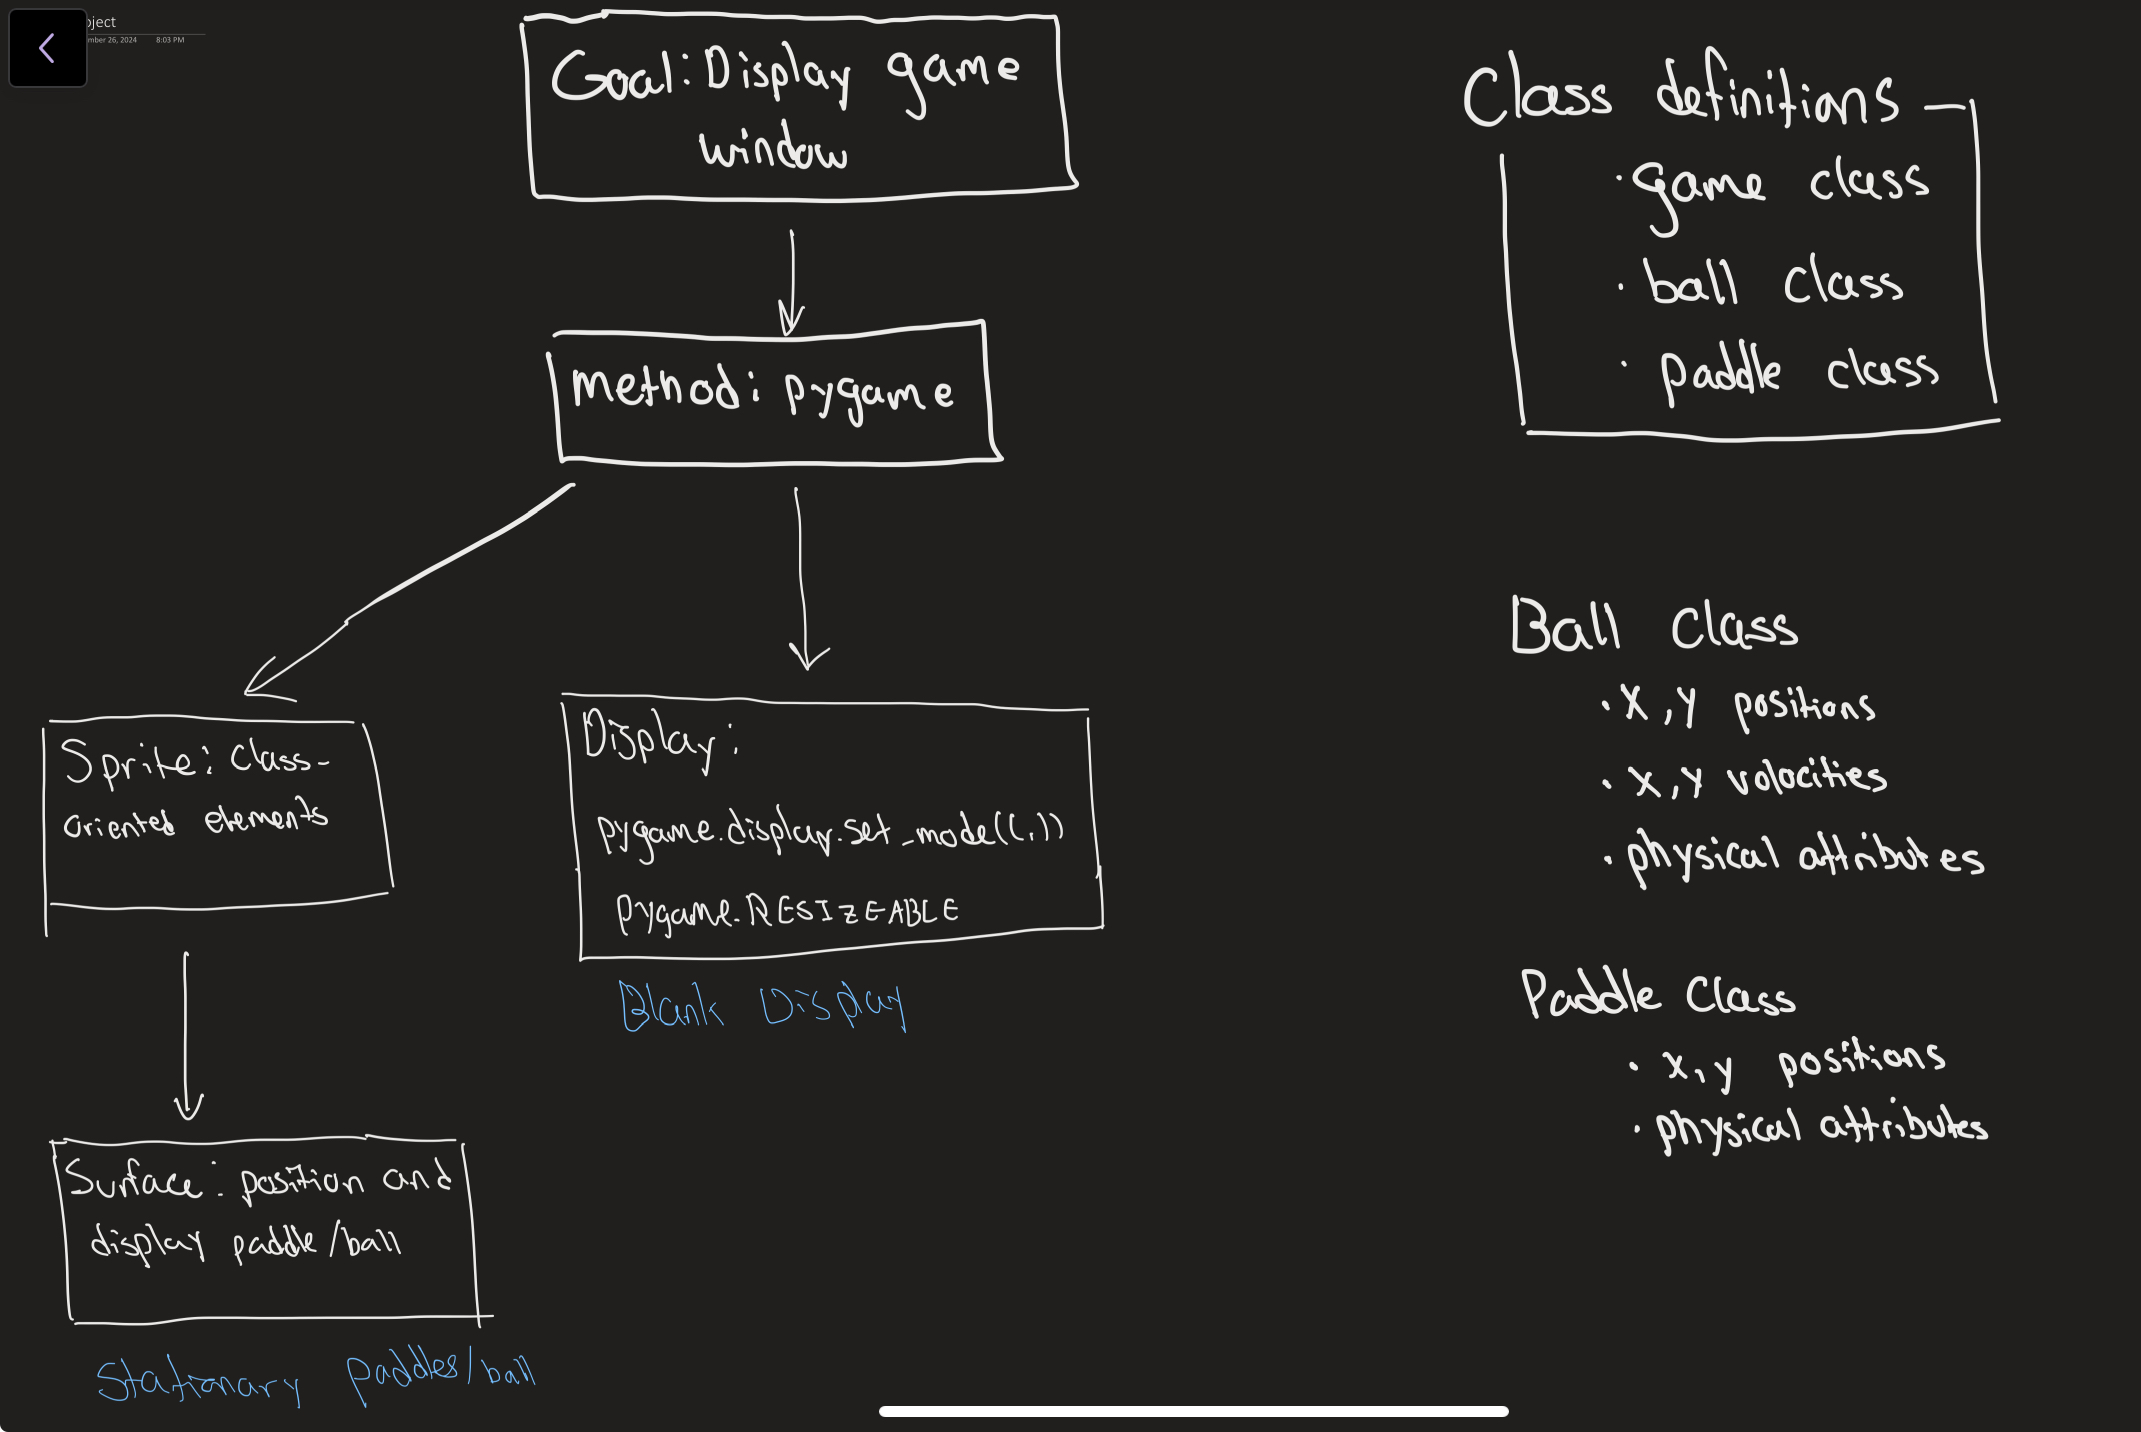 oject
mber 26, 2024 8:03 PM
Goal: Display game
window
method: pygame
Sprite: Class-
oriented elements
Surface: position and
display paddle/ball
Stationary Paddles/ball
Display:
pygame.display.set_mode((,))
pygame.RESIZEABLE
Blank Display
Class definitions
· game class
· ball class
· paddle class
Ball Class
· X,Y positions
· X,Y volocities
· physical attributes
Paddle Class
· x,y positions
· physical attributes